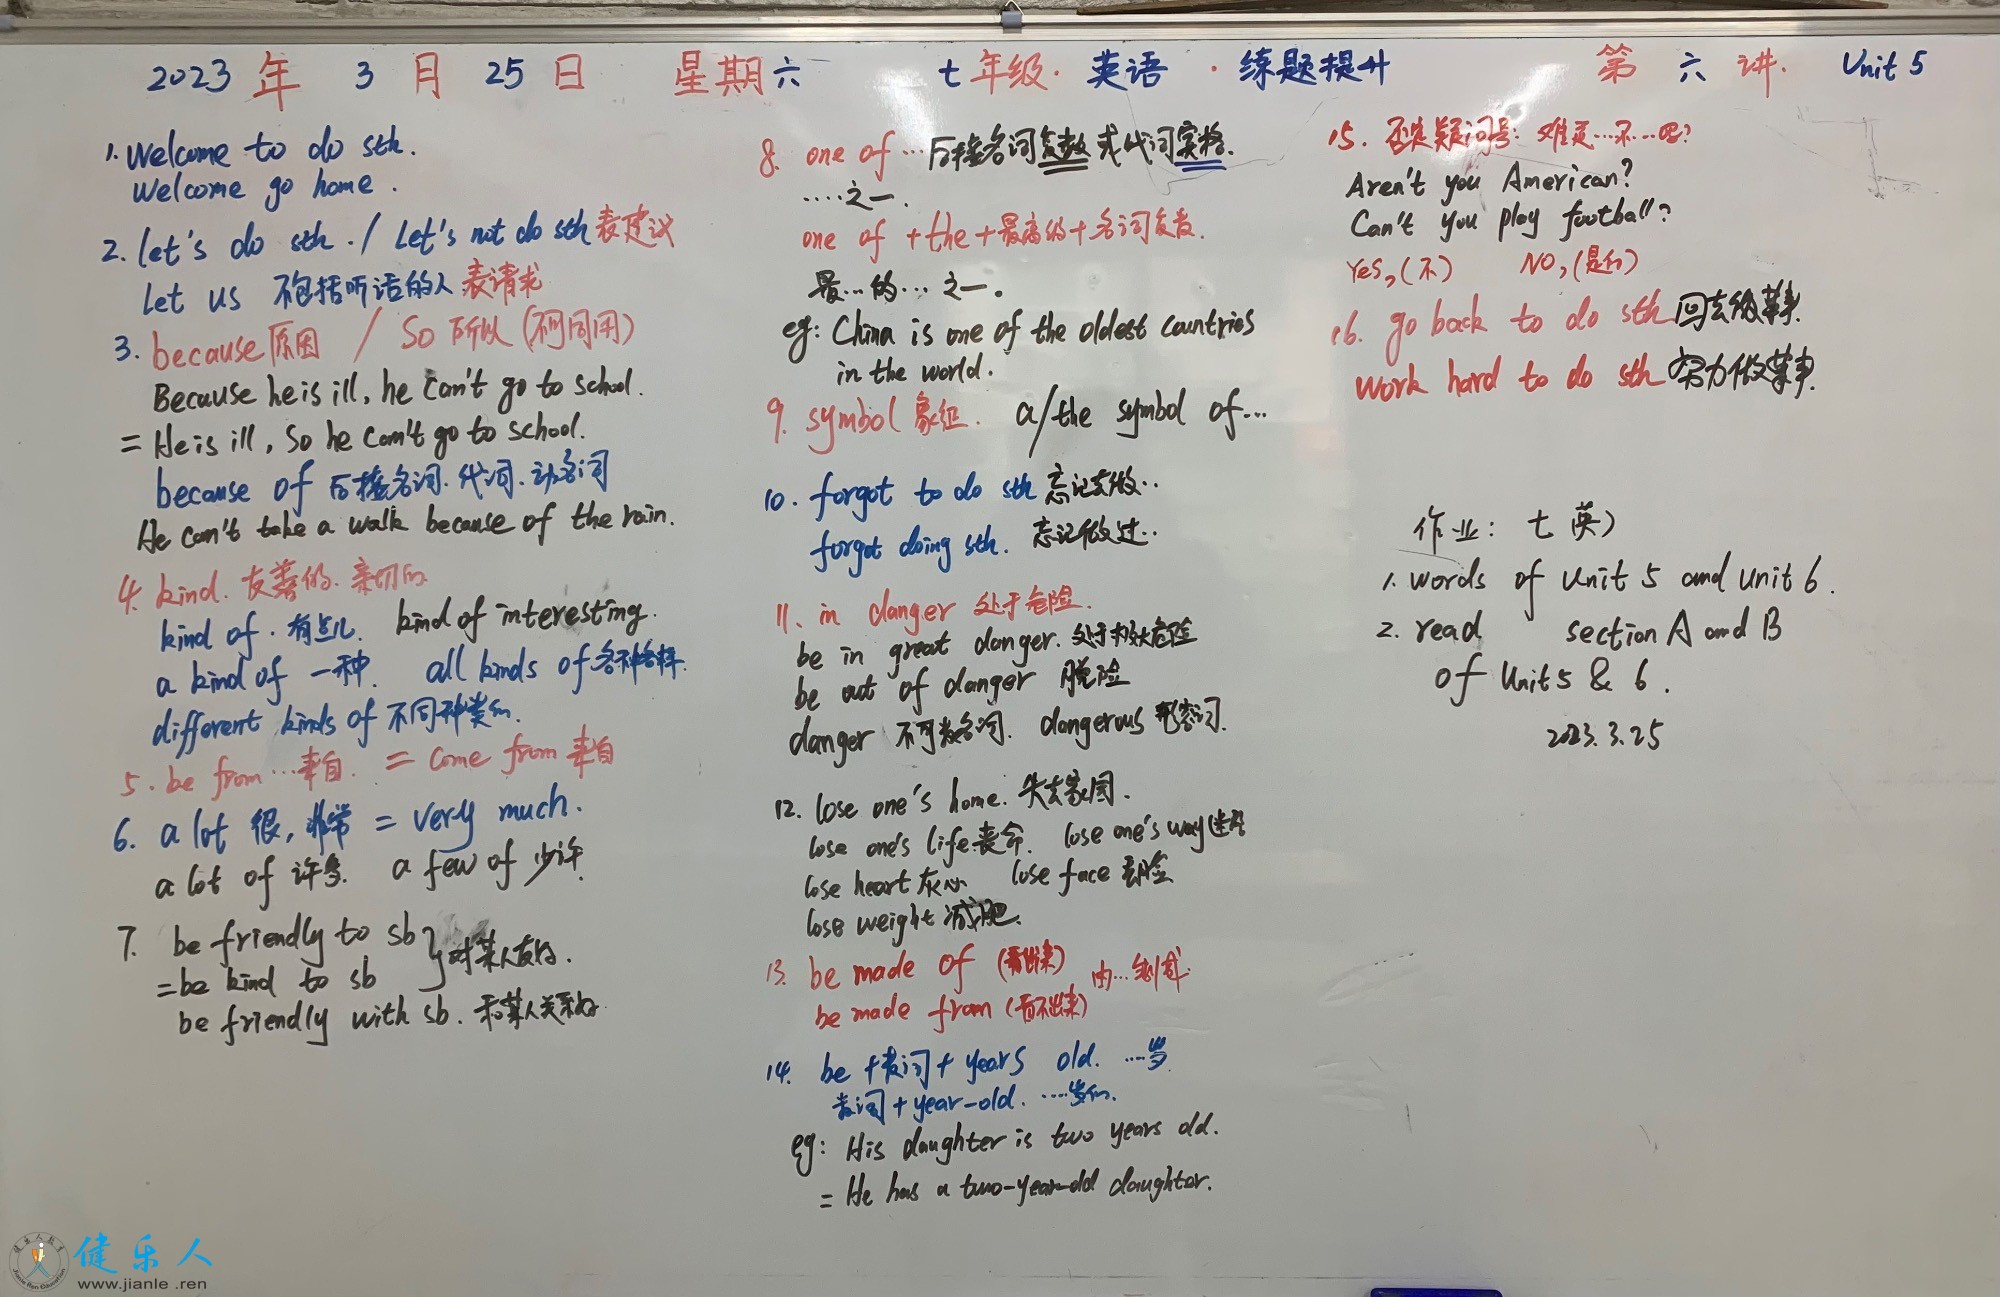 2023 年 3 月 25 日 星期六 七年级·英语·练题提升 第六讲. Unit 5
1. Welcome to do sth.
Welcome go home.
2. let's do sth. / Let's not do sth 表建议
Let us 不包括听话的人 表请求
3. because 原因 / So 所以 (不同用)
Because he is ill, he can't go to school.
= He is ill, So he can't go to school.
because of 后接名词.代词.动名词
He can't take a walk because of the rain.
4. kind. 友善的.亲切的
kind of. 有点儿. kind of interesting.
a kind of 一种. all kinds of 各种各样.
different kinds of 不同种类的.
5. be from…来自. = come from 来自
6. a lot 很,非常 = very much.
a lot of 许多. a few of 少许.
7. be friendly to sb } 对某人友好.
= be kind to sb
be friendly with sb. 和某人关系好.
8. one of … 后接名词复数或代词宾格.
……之一.
one of + the + 最高级 + 名词复数.
最…的…之一。
eg: China is one of the oldest countries
in the world.
9. symbol 象征. a/the symbol of…
10. forgot to do sth 忘记去做..
forgot doing sth. 忘记做过..
11. in danger 处于危险.
be in great danger. 处于极大危险
be out of danger 脱险
danger 不可数名词. dangerous 形容词.
12. lose one's home. 失去家园.
lose one's life 丧命. lose one's way 迷路
lose heart 灰心 lose face 丢脸
lose weight 减肥.
13. be made of (看出来) 由…制成.
be made from (看不出来)
14. be + 数词 + years old. ……岁.
数词 + year-old. ……岁的.
eg: His daughter is two years old.
= He has a two-year-old daughter.
15. 否定疑问句: 难道…不…吗?
Aren't you American?
Can't you play football?
Yes, (不) NO, (是的)
16. go back to do sth 回去做某事.
work hard to do sth 努力做某事.
作业: 七英)
1. words of Unit 5 and unit 6.
2. read section A and B
of Unit 5 & 6.
2023.3.25
健乐人
www.jianle.ren